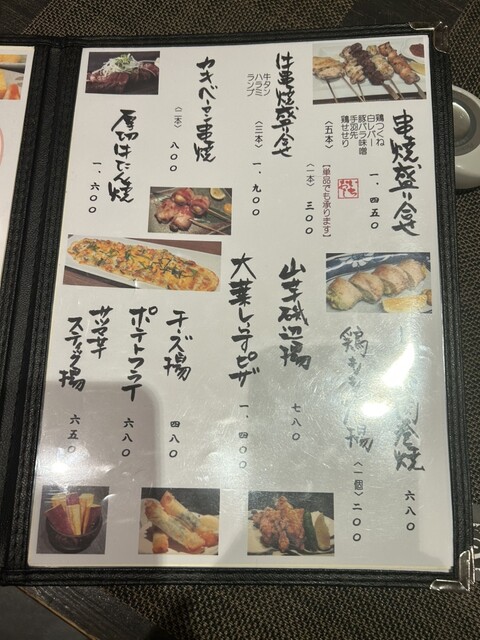 串焼盛り合せ
鶏つくね
白レバー
豚バラ味噌
手羽先
鶏せせり
〈五本〉
一、四五〇
[単品でも承ります]
〈一本〉 三〇〇
牛串焼盛り合せ
牛タン
ハラミ
ランプ
〈三本〉
一、九〇〇
カキベーコン串焼
〈二本〉
八〇〇
厚切牛たん焼
一、六〇〇
巻焼
六八〇
鶏もも
揚
〈一個〉 二〇〇
山芋磯辺揚
七八〇
大葉しらすピザ
一、四〇〇
チーズ揚
四八〇
ポテトフライ
六八〇
サツマ芋
スティック揚
六五〇